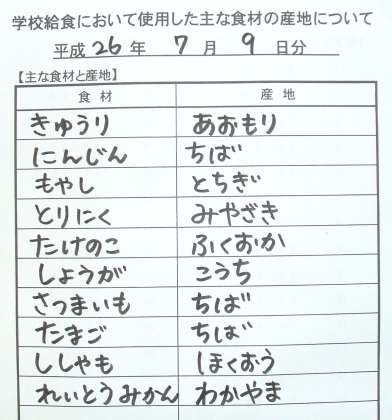 学校給食において使用した主な食材の産地について
平成 26 年 7 月 9 日分
【主な食材と産地】
食材 産地
きゅうり あおもり
にんじん ちば
もやし とちぎ
とりにく みやざき
たけのこ ふくおか
しょうが こうち
さつまいも ちば
たまご ちば
ししゃも ほくおう
れいとうみかん わかやま